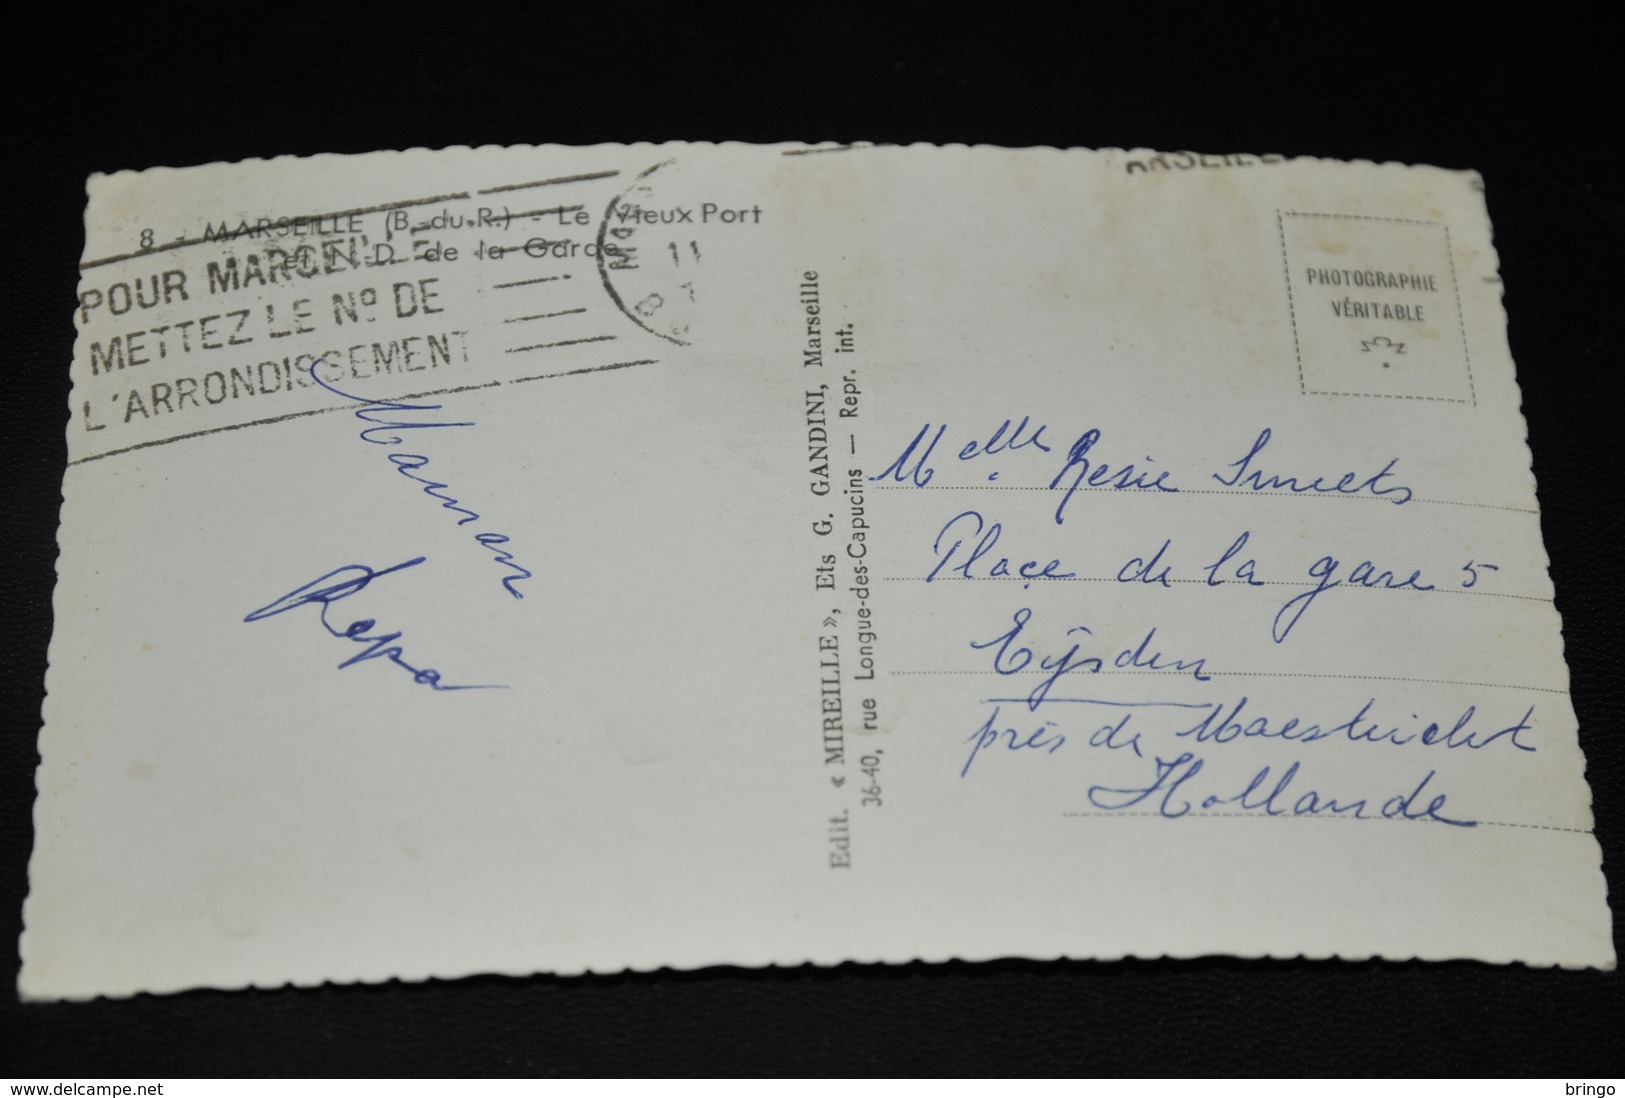 8 - MARSEILLE (B.-du-R.) - Le Vieux Port
et N.-D. de la Garde
POUR MARSEILLE
METTEZ LE Nº DE
L'ARRONDISSEMENT
11
ARSEILLE
PHOTOGRAPHIE
VÉRITABLE
Edit. « MIREILLE », Ets G. GANDINI, Marseille
36-40, rue Longue-des-Capucins — Repr. int.
Maman
Papa
Melle Resie Smeets
Place de la gare 5
Eijsden
près de Maestricht
Hollande
www.delcampe.net
bringo